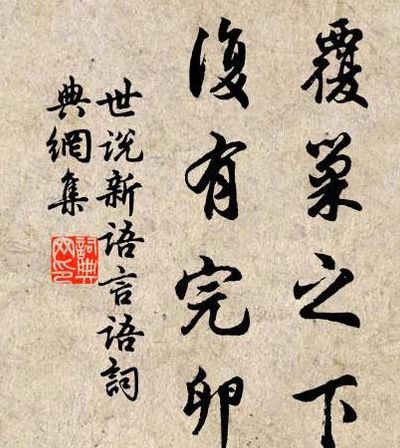 覆巢之下
復有完卵
世说新语言语詞
典網集
詞典
网印